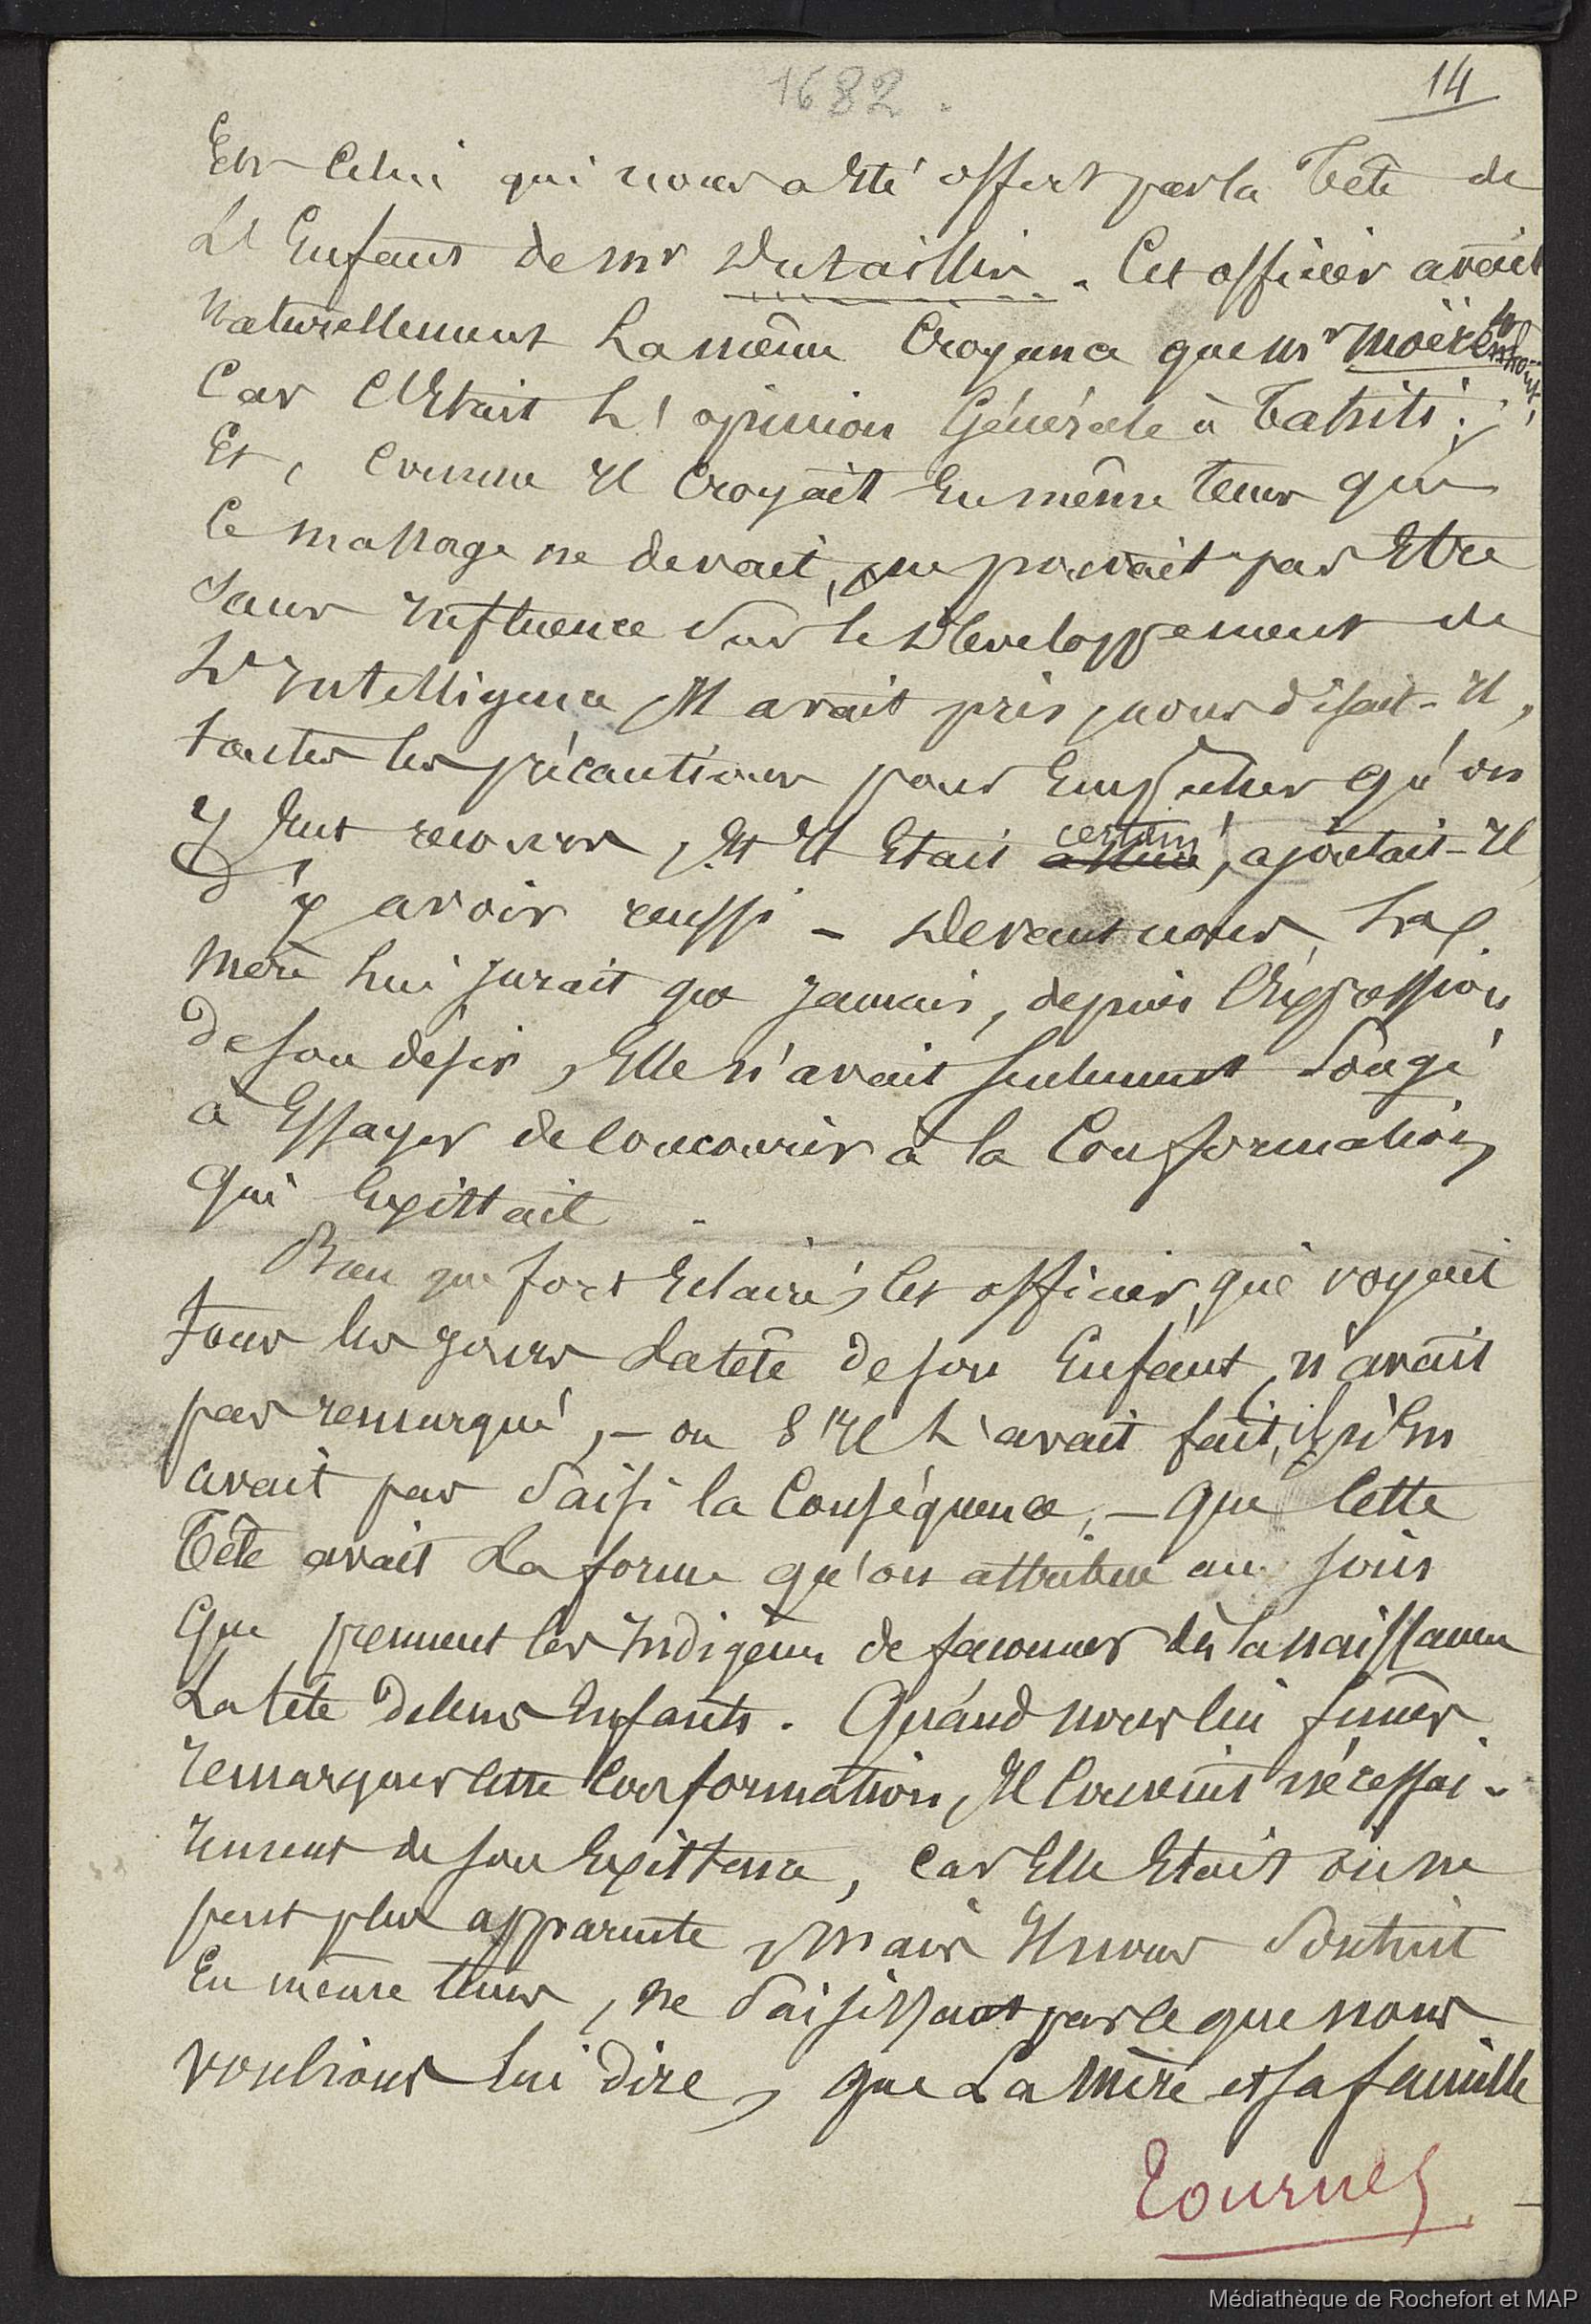 1682.
14
Est Celui qui nous a Eté offert par la Tête de
L'Enfant de Mr Dutaillin. Cet officier avait
Naturellement La même Croyance que Mr Moërenhout,
Car C'Etait L'opinion Générale à Tahiti;
Et, Comme Il Croyait En même tems que
Ce massage ne devait, ne pouvait pas Etre
Sans Influence Sur le Développement de
L'Intelligence, Il avait pris, nous disait-Il,
toutes les précautions pour Empêcher qu'on
y Eut recours, Et Il Etait certain, ajoutait-Il
d'y avoir reussi - Devant nous, La
Mère Lui Jurait que Jamais, depuis l'Expression
de son désir, Elle n'avait seulement Songé
à Essayer de Concourir à la Conformation
qui Existait.
Bien que fort Eclairé, Cet officier, qui voyait
tous les Jours La tête de son Enfant, n'avait
pas remarqué, - ou S'Il L'avait fait, il n'En
avait pas Saisi la Conséquence, - que Cette
Tête avait La forme qu'on attribue au soin
Que prennent les Indigènes de faconner dès la naissance
La tête de leurs Enfants. Quand nous lui fîmes
remarquer Cette Conformation, Il Convint nécessai-
rement de son Existence, Car Elle Etait on ne
peut plus apparente, Mais Il nous Soutint
En même tems, ne Saisissant pas Ce que nous
voulions lui dire, que La Mère et sa famille
Tournez
Médiathèque de Rochefort et MAP